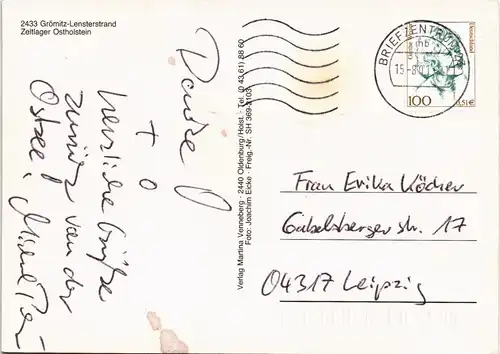 2433 Grömitz-Lensterstrand
Zeltlager Ostholstein
Danke
+
herzliche Grüße
zurück von der
Ostsee!
Verlag Martina Venneberg · 2440 Oldenburg/Holst. · Tel. (0 43 61) 88 60
Foto: Joachim Eicke · Freig.-Nr. SH 369-2103
BRIEFZENTRUM
100
0,51€
Frau Erika Köcher
Gabelsberger str. 17
04317 Leipzig